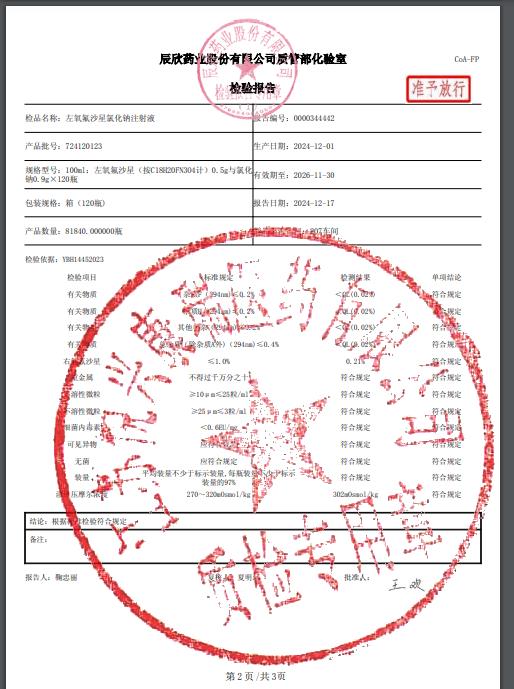 辰欣药业股份有限公司质管部化验室
CoA-FP
检验报告
准予放行
检品名称: 左氧氟沙星氯化钠注射液
报告编号: 0000344442
产品批号: 724120123
生产日期: 2024-12-01
规格型号: 100ml: 左氧氟沙星（按C18H20FN304计）0.5g与氯化钠0.9g×120瓶
有效期至: 2026-11-30
包装规格: 箱（120瓶）
报告日期: 2024-12-17
产品数量: 81840.000000瓶
207车间
检验依据: YBH14452023
检验项目 标准规定 检测结果 单项结论
有关物质 (294nm)≤0.2% <QL(0.02%) 符合规定
有关物质 (294nm)≤0.2% <QL(0.02%) 符合规定
有关物质 其他 (294nm)≤0.2% <QL(0.02%) 符合规定
有关物质 (除杂质A外) (294nm)≤0.4% <QL(0.02%) 符合规定
右氧氟沙星 ≤1.0% 0.21% 符合规定
重金属 不得过千万分之 符合规定 符合规定
不溶性微粒 ≥10μm≤25粒/ml 符合规定 符合规定
不溶性微粒 ≥25μm≤3粒/ml 符合规定 符合规定
细菌内毒素 <0.6EU/mg 符合规定 符合规定
可见异物 应符合规定 符合规定 符合规定
无菌 应符合规定 符合规定 符合规定
装量 平均装量不少于标示装量,每瓶装量不少于标示装量的97% 符合规定 符合规定
渗透压摩尔浓度 270~320mOsmol/kg 302mOsmol/kg 符合规定
结论: 根据 检验符合规定
备注:
报告人: 鞠忠丽
复核人: 夏明
批准人:
王欢
第 2 页 /共 3页